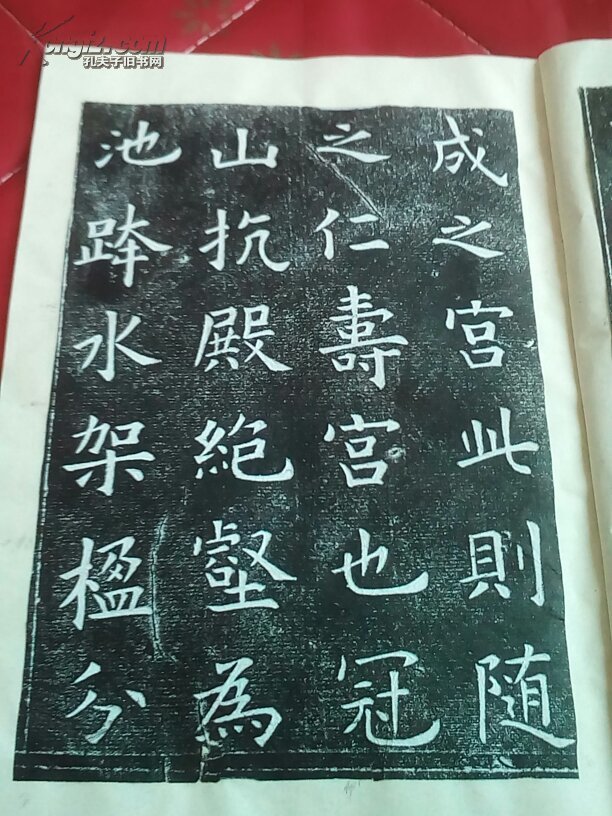 成之宮此則随
之仁壽宮也冠
山抗殿絕壑為
池跨水架楹分
Kongfz.com
孔夫子旧书网